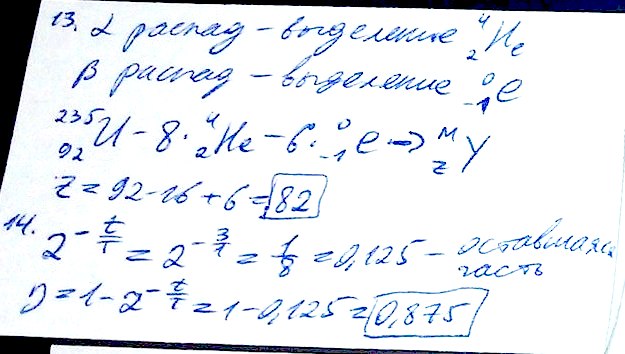 13. α распад – выделение ⁴₂He
β распад – выделение ⁰₋₁e
²³⁵₉₂U – 8·⁴₂He – 6·⁰₋₁e → ᴹ_Z Y
Z = 92 - 16 + 6 = 82
14. 2^(-t/T) = 2^(-3/1) = 1/8 = 0,125 – оставшаяся часть
D = 1 - 2^(-t/T) = 1 - 0,125 = 0,875